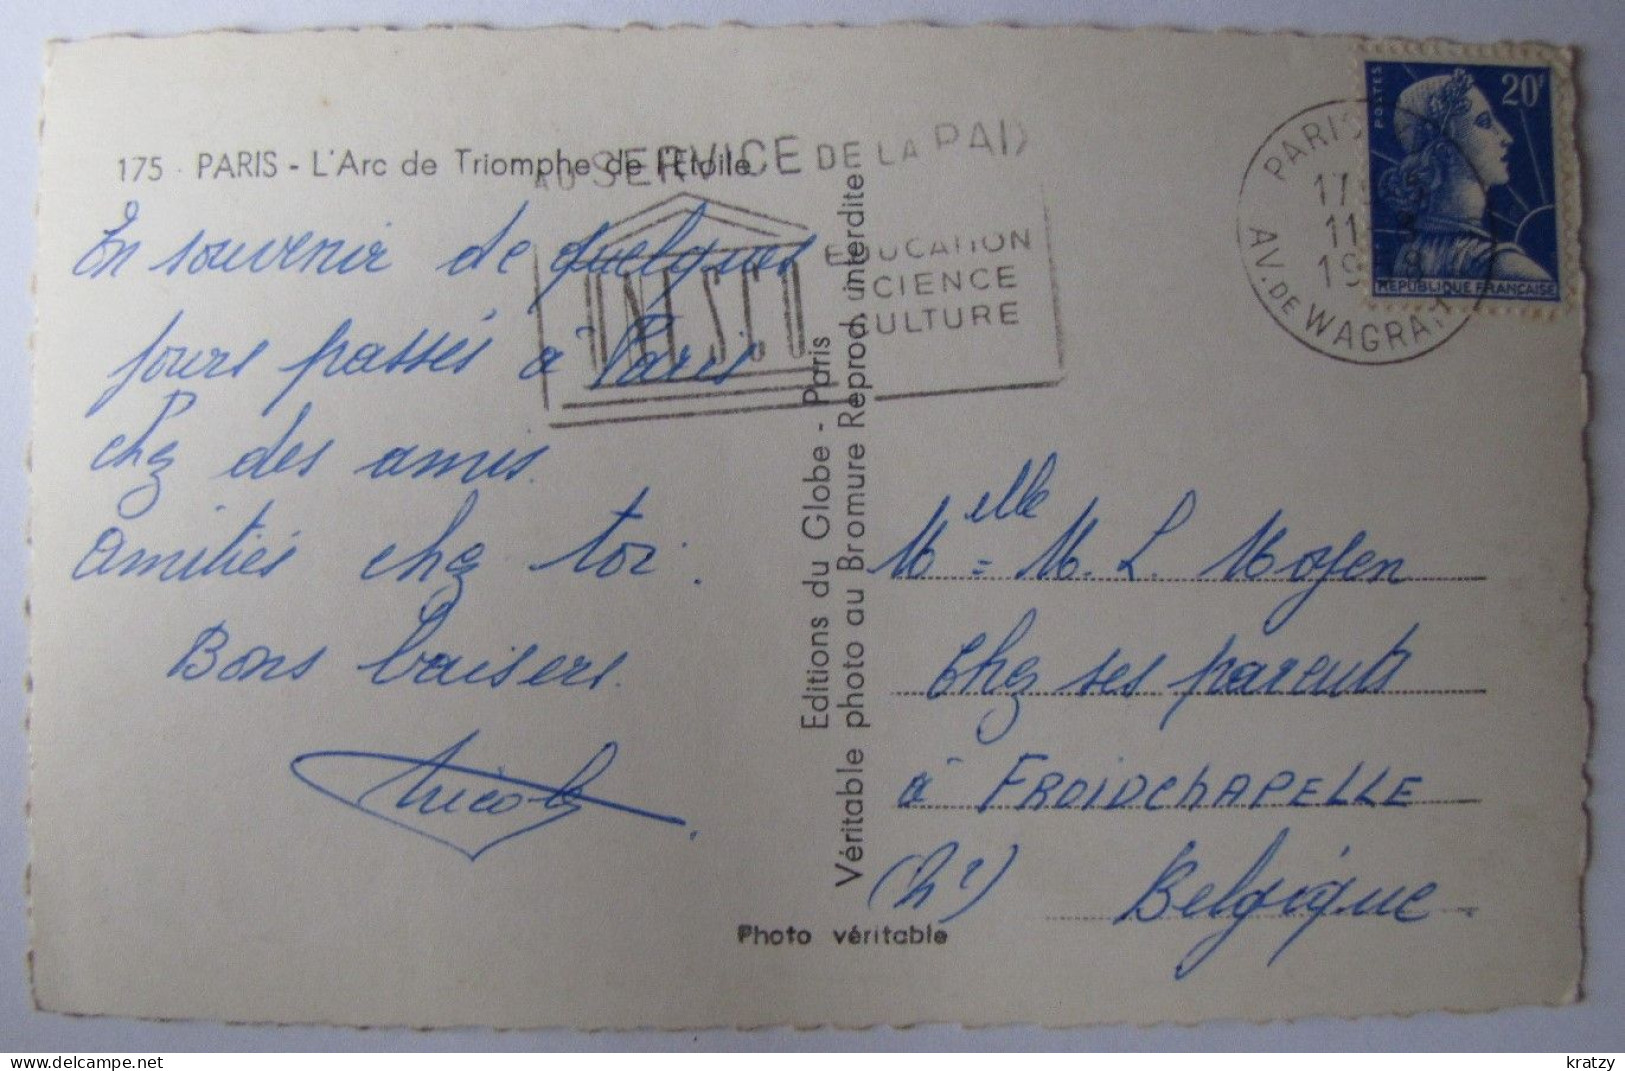 175 - PARIS - L'Arc de Triomphe de l'Etoile
AU SERVICE DE LA PAIX
UNESCO
EDUCATION
SCIENCE
CULTURE
En souvenir de quelques
jours passés à Paris
chez des amis.
Amitiés chez toi.
Bons baisers.
Nicole
Editions du Globe - Paris
Véritable photo au Bromure Reprod. interdite
Photo véritable
PARIS
AV. DE WAGRAM
POSTES
20F
REPUBLIQUE FRANÇAISE
Melle = M. L.
chez ses parents
à FROIDCHAPELLE
(ht) Belgique.
delcampe.net
kratzy